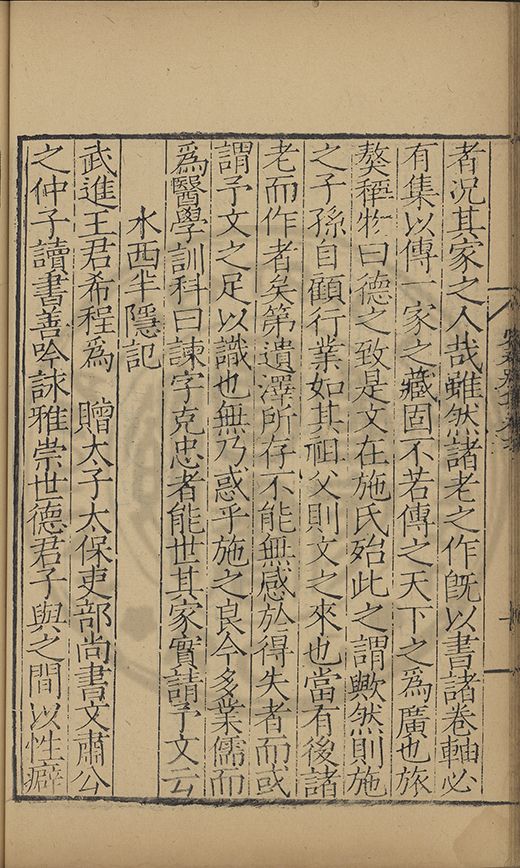 者況其家之人哉雖然諸老之作旣以書諸卷軸必
有集以傳一家之藏固不若傳之天下之爲廣也旅
獒稱物曰德之致是文在施氏殆此之謂歟然則施
之子孫自顧行業如其祖父則文之來也當有後諸
老而作者矣第遺澤所存不能無感於得失者而或
謂予文之足以識也無乃惑乎施之良今多業儒而
爲醫學訓科曰諫字克忠者能世其家實請予文云
水西半隱記
武進王君希程爲 贈太子太保吏部尚書文肅公
之仲子讀書善吟詠雅崇世德君子與之間以性癖